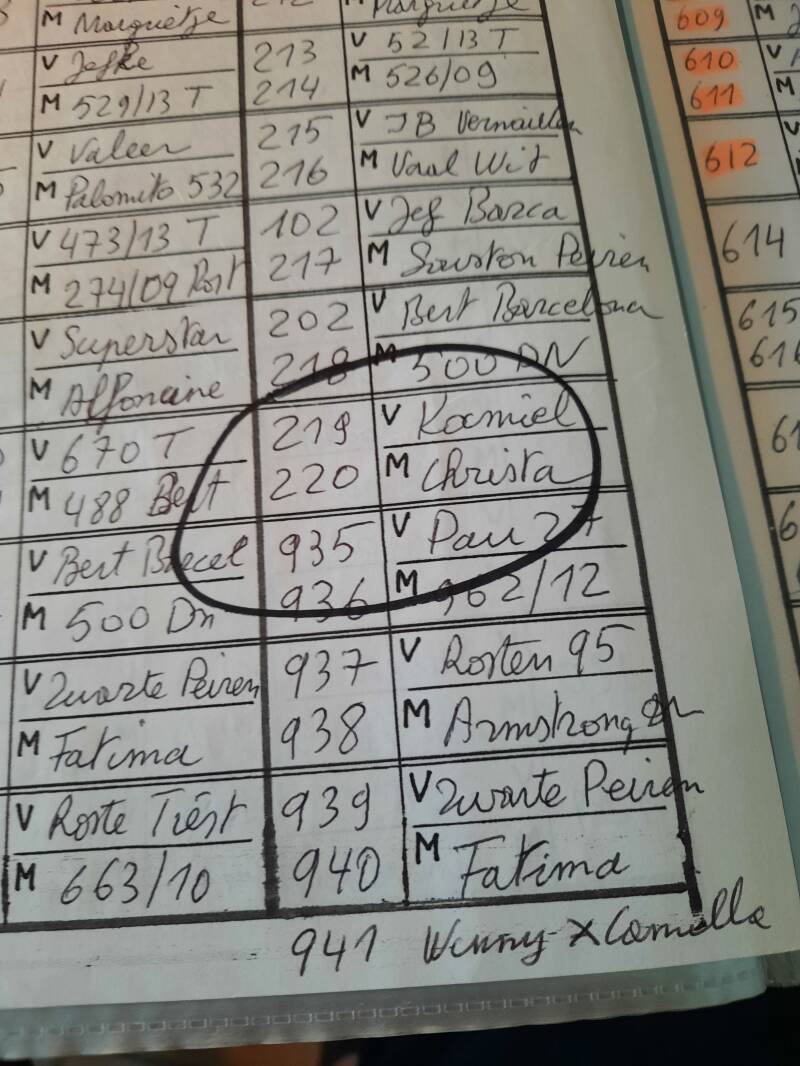 M Marguietje
V Jefke 213 V 52/13 T 610
M 529/13 T 214 M 526/09 611
V Valeer 215 V JB Vernaillen
M Palomito 532 216 M Vaal Wit 612
V 473/13 T 102 V Jef Barca
M 274/09 Rost 217 M Souston Peiren 614
V Superstar 202 V Bert Barcelona 615
M Alfonsine 218 M 500 DN 616
V 670 T 219 V Kamiel
M 488 Bert 220 M Christa
V Bert Barcel 935 V Pau 27
M 500 Dn 936 M 962/12
V Zwarte Peiren 937 V Rosten 95
M Fatima 938 M Armstrong
V Roste Triest 939 V Zwarte Peiren
M 663/10 940 M Fatima
941 Wenny x Camilla
609 M